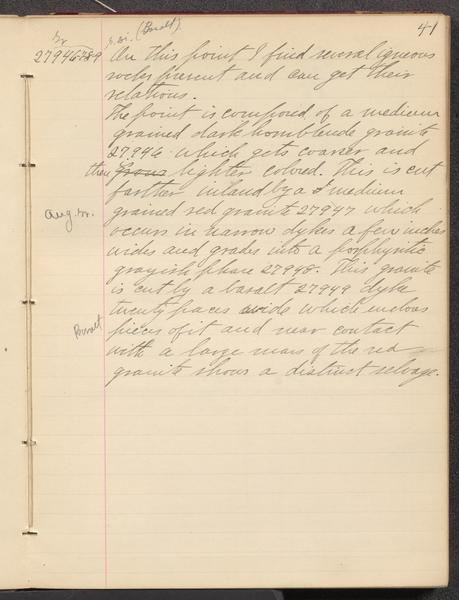 41
Gr. S. Si. (Basalt)
27946-7-8-9 On this point I find several igneous
rocks present and can get their
relations.
The point is composed of a medium
grained dark hornblende granite
27946 which gets coarser and
then lighter colored. This is cut
farther inland by a medium
Aug. Gr. grained red granite 27947 which
occurs in narrow dykes a few inches
wide and grades into a porphyritic
grayish phase 27948. This granite
is cut by a basalt 27949 dyke
twenty paces wide which incloses
Basalt pieces of it and near contact
with a large mass of the red
granite shows a distinct selvage.